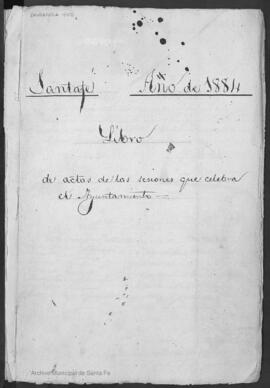 Santafé Año de 1884
Libro
de actas de las sesiones que celebra
el Ayuntamiento
Archivo Municipal de Santa Fe